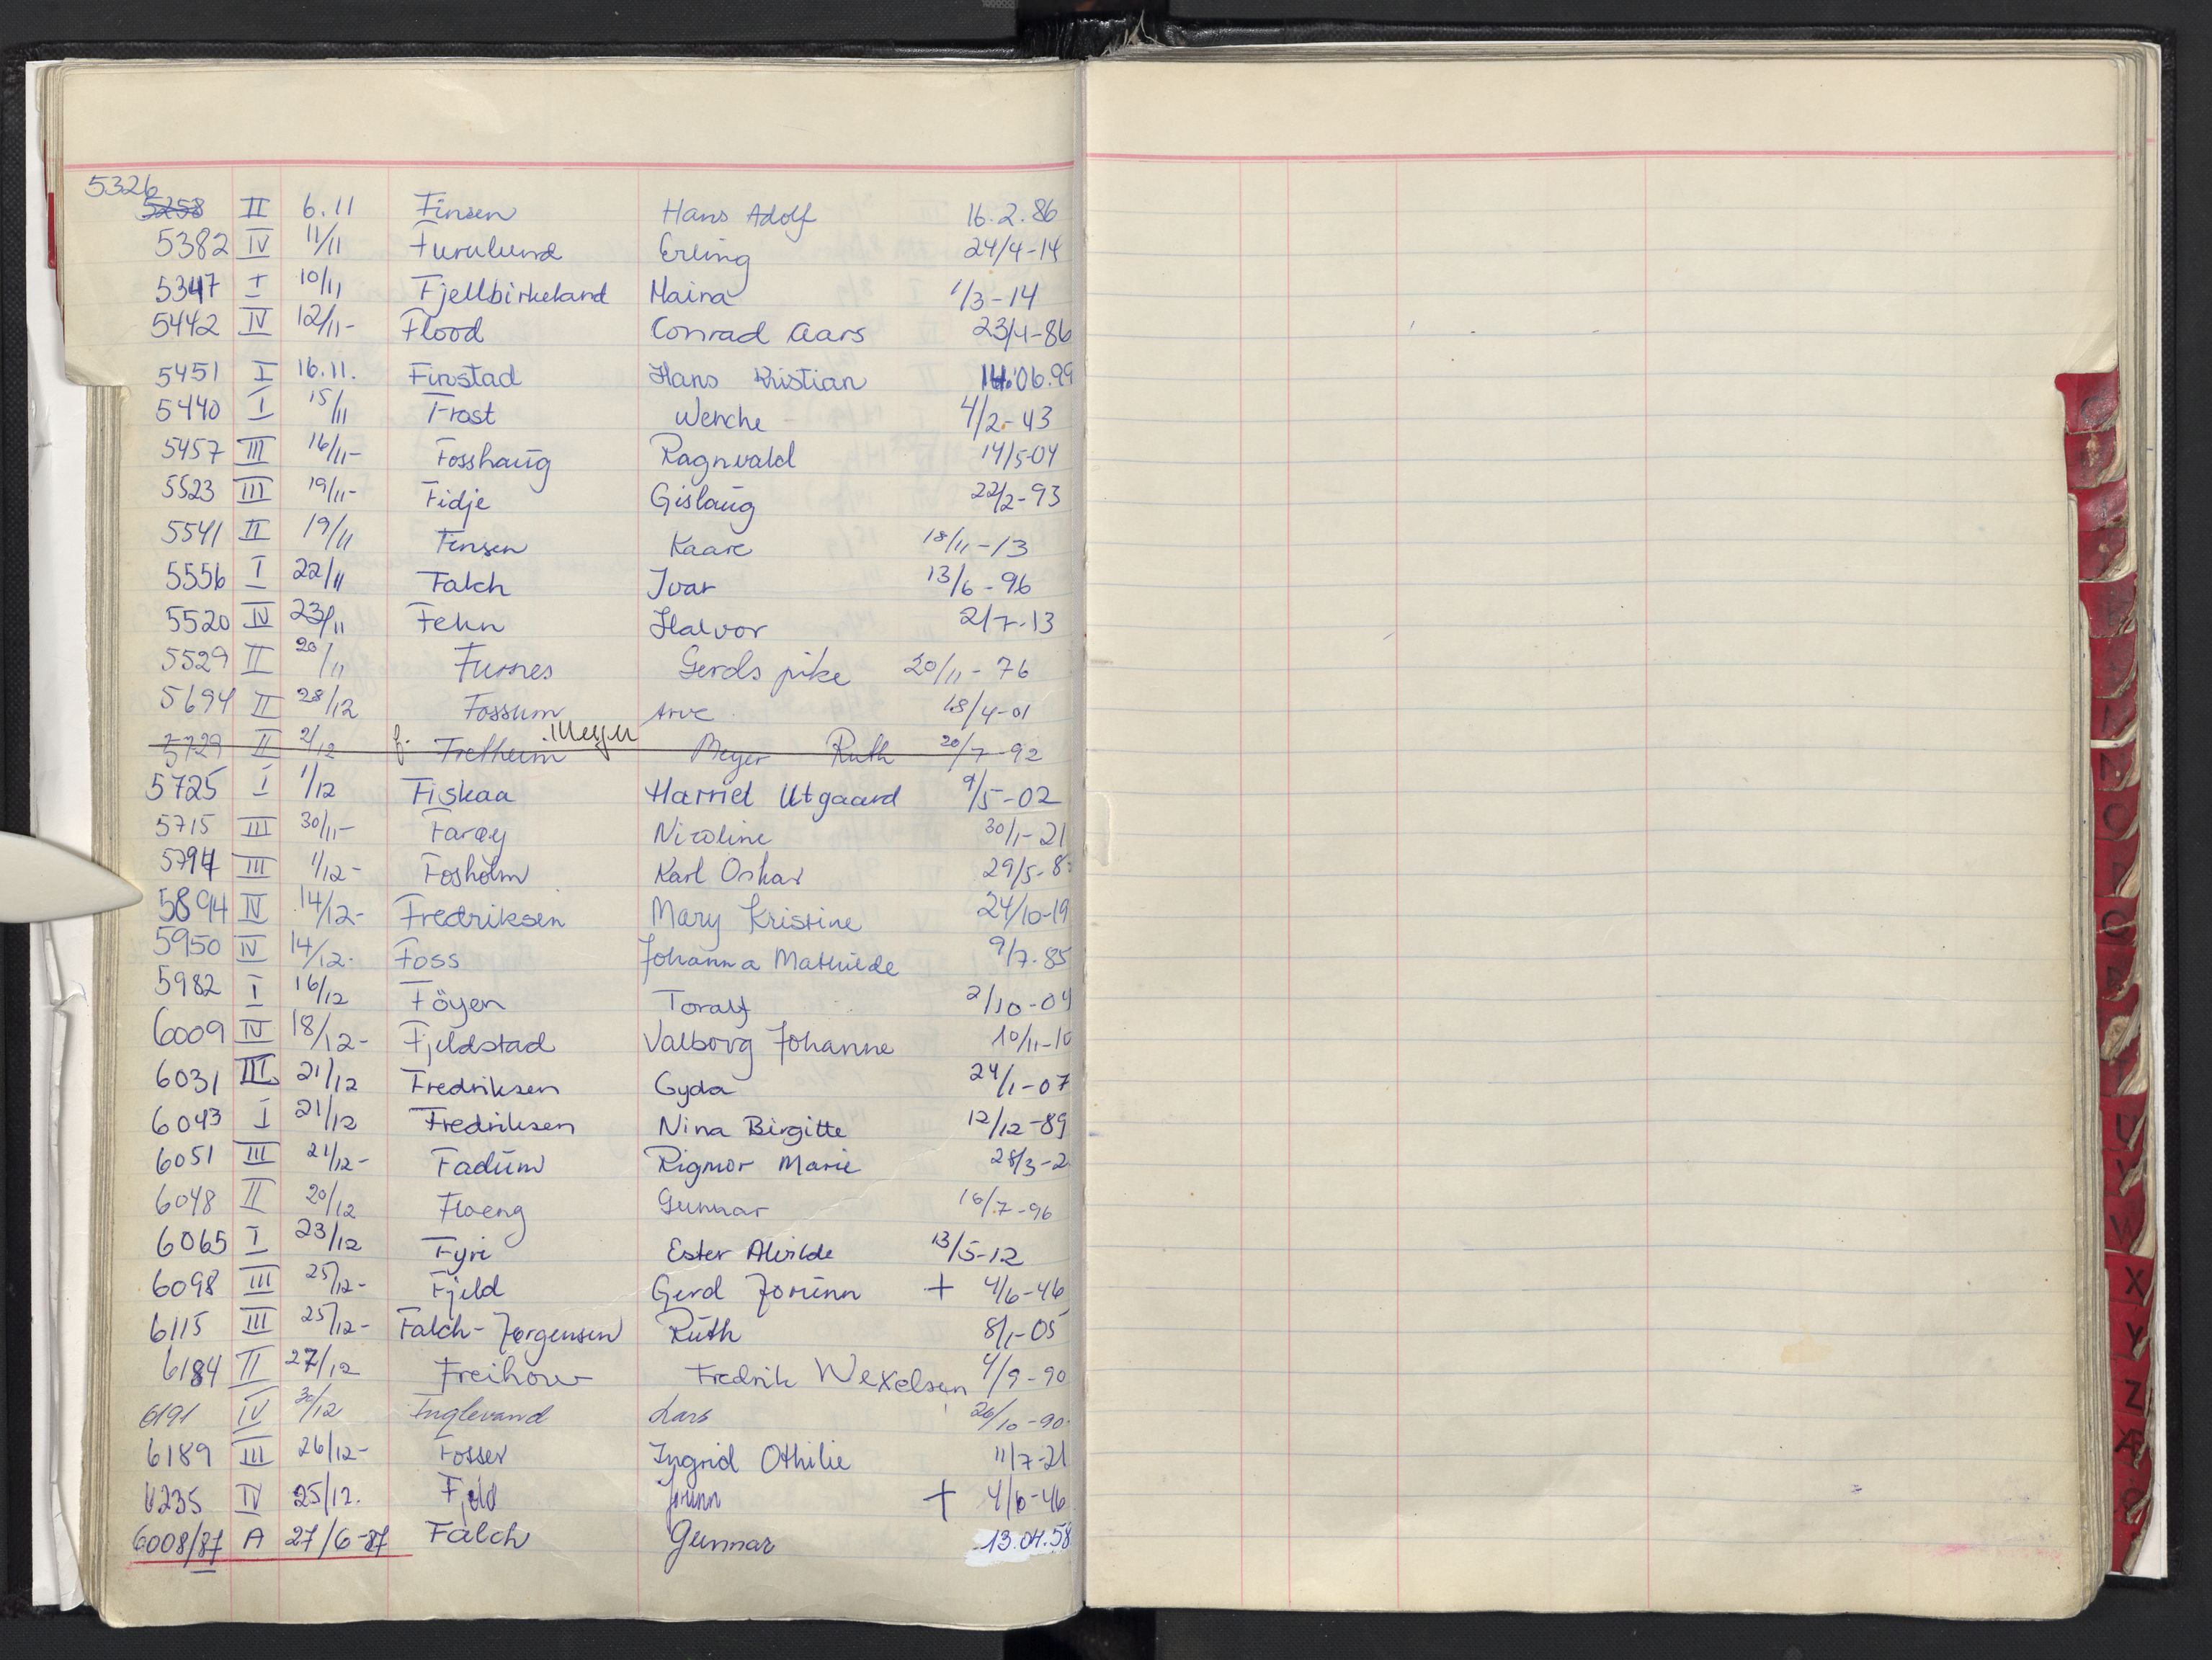 5326
5258 II 6.11 Finsen Hans Adolf 16.2.86
5382 IV 11/11 Furulund Erling 24/4-14
5347 I 10/11 Fjellbirkeland Maina 1/3-14
5442 IV 12/11- Flood Conrad Aars 23/4-86
5451 I 16.11. Finstad Hans Kristian 14.06.99
5440 I 15/11 Frost Wenche 4/2-43
5457 III 16/11- Fosshaug Ragnvald 14/5-04
5523 III 19/11- Fidje Gislaug 22/2-93
5541 II 19/11 Finsen Kaare 18/11-13
5556 I 22/11 Falch Ivar 13/6-96
5520 IV 23/11 Fehn Halvor 2/7-13
5529 II 20/11 Furnes Gerds pike 20/11-76
5694 II 28/12 Fossum Arve 18/4-01
5729 II 2/12 f. Fretheim Meyer Meyer Ruth 20/7-92
5725 I 1/12 Fiskaa Harriet Utgaard 9/5-02
5715 III 30/11- Farøy Nicoline 30/1-21
5794 III 1/12- Fosholm Karl Oskar 29/5-8
5894 IV 14/12- Fredriksen Mary Kristine 24/10-19
5950 IV 14/12- Foss Johanna Mathilde 9/7-85
5982 I 16/12 Föyen Toralf 2/10-04
6009 IV 18/12- Fjeldstad Valborg Johanne 10/11-10
6031 III 21/12 Fredriksen Gyda 24/1-07
6043 I 21/12 Fredriksen Nina Birgitte 12/12-89
6051 III 21/12- Fadum Rigmor Marie 28/3-2
6048 II 20/12 Floeng Gunnar 16/7-96
6065 I 23/12 Fyri Ester Alvilde 13/5-12
6098 III 25/12- Fjeld Gerd Jorunn + 4/6-46
6115 III 25/12- Falch-Jørgensen Ruth 8/1-05
6184 II 27/12 Freihow Fredrik Wexelsen 4/9-90
6191 IV 30/12 Fuglevand Lars 26/10-90
6189 III 26/12- Fosser Ingrid Othilie 11/7-21
6235 IV 25/12. Fjeld Jorunn + 4/6-46
6008/87 A 27/6-87 Falch Gunnar 13.04.58
U
V
W
X
Y
Z